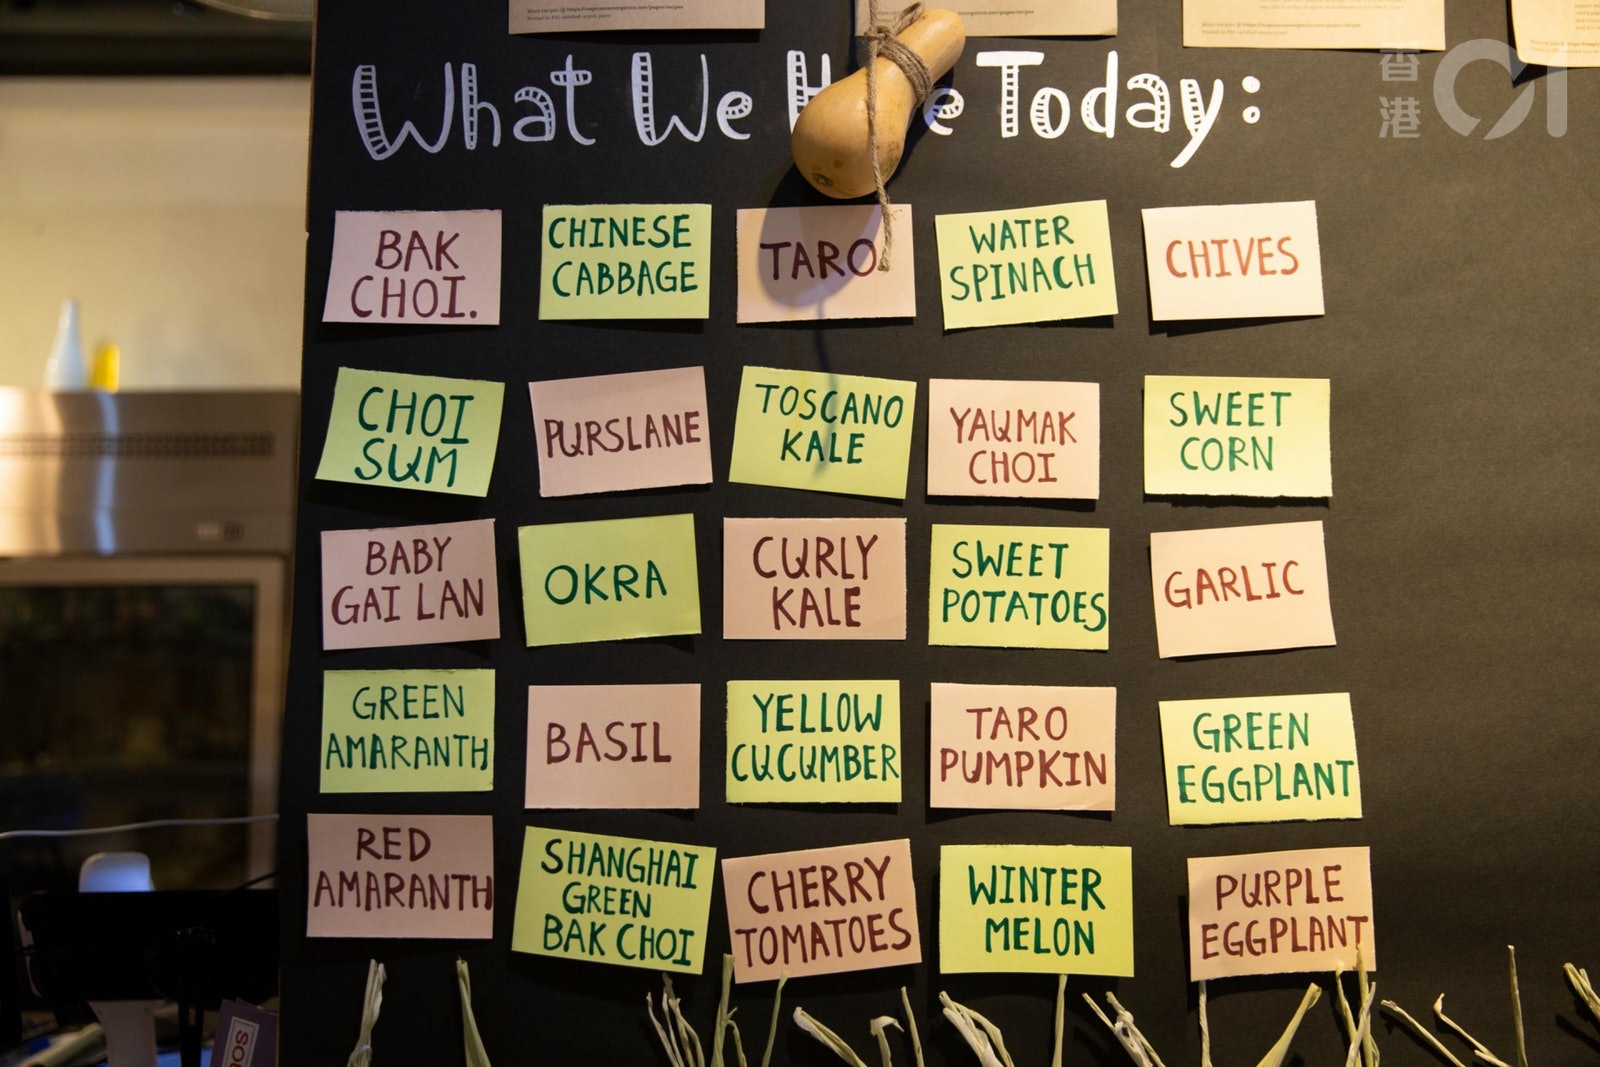 What We Have Today:
香港01
BAK
CHOI.
CHINESE
CABBAGE
TARO
WATER
SPINACH
CHIVES
CHOI
SUM
PURSLANE
TOSCANO
KALE
YAUMAK
CHOI
SWEET
CORN
BABY
GAI LAN
OKRA
CURLY
KALE
SWEET
POTATOES
GARLIC
GREEN
AMARANTH
BASIL
YELLOW
CUCUMBER
TARO
PUMPKIN
GREEN
EGGPLANT
RED
AMARANTH
SHANGHAI
GREEN
BAK CHOI
CHERRY
TOMATOES
WINTER
MELON
PURPLE
EGGPLANT